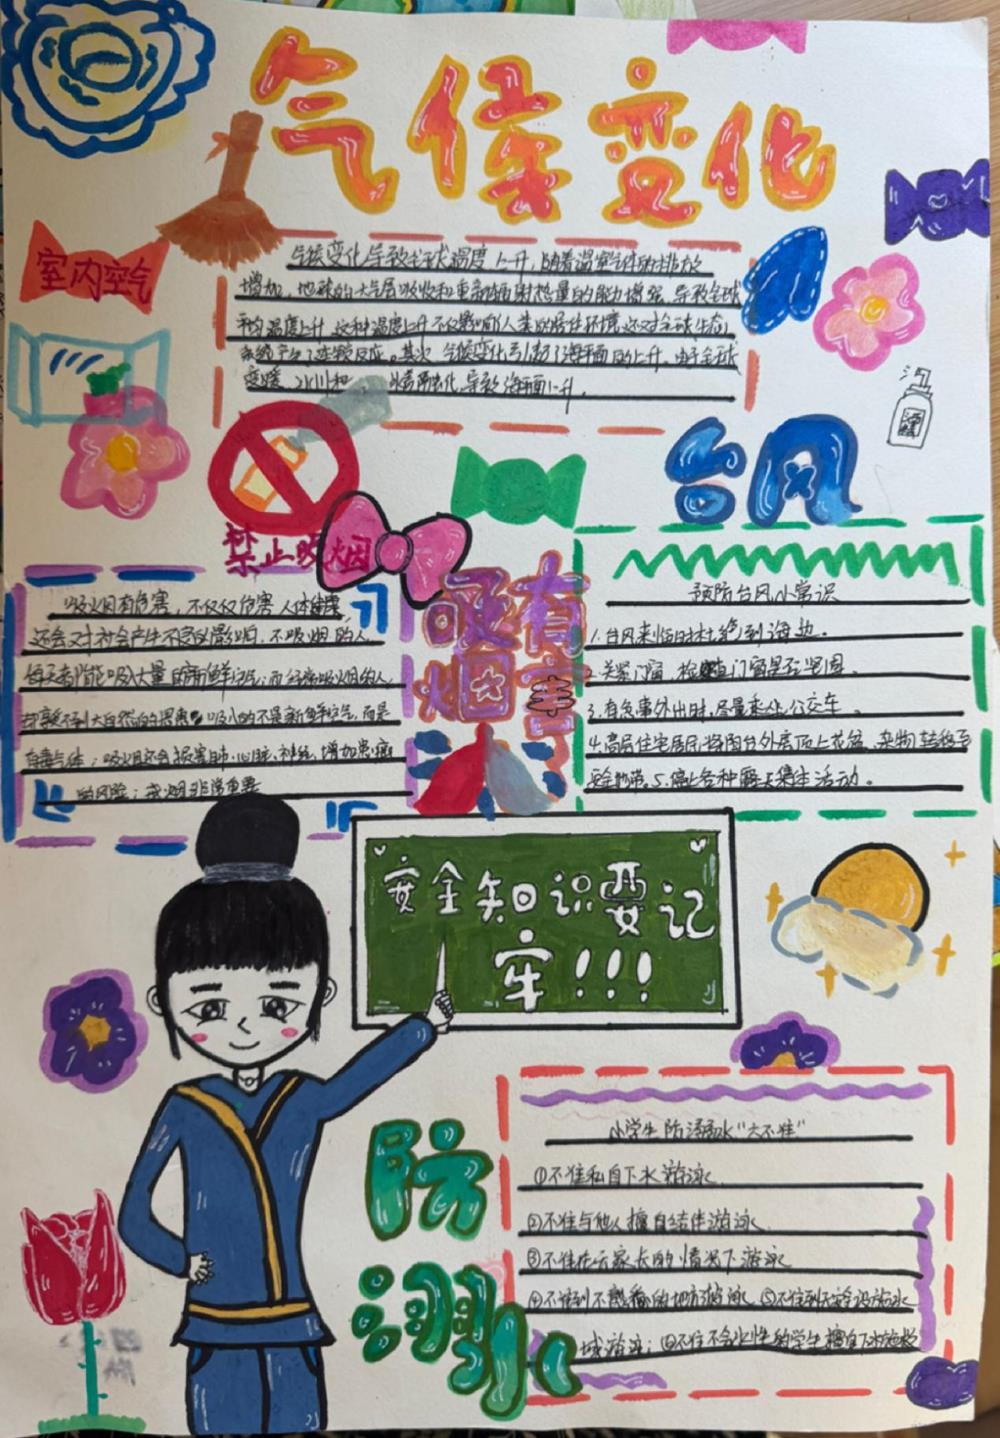 气候变化
室内空气
气候变化导致全球温度上升,随着温室气体的排放
增加,地球的大气层吸收和重新辐射热量的能力增强,导致全球
平均温度上升,这种温度上升不仅影响人类的居住环境,还对全球生态
系统产生了连锁反应。其次,气候变化引起了海平面的上升,由于全球
变暖,冰川和 融化,导致海平面上升。
酒精
禁止吸烟
台风
吸烟有害
吸烟有危害,不仅仅危害人体健康,
还会对社会产生不良的影响,不吸烟的人,
每天都能吸大量的新鲜空气;而经常吸烟的人,
却享受不到大自然的恩惠,吸入的不是新鲜空气,而是
有毒气体;吸烟还会损害肺、心脏、神经,增加患癌
的风险;戒烟非常重要
预防台风小常识
1.台风来临时杜绝到海边。
2.关紧门窗,检查门窗是否坚固。
3.有急事外出时,尽量乘坐公交车。
4.高层住宅居民将阳台外房顶上花盆、杂物转移至
安全地带。5.停止各种露天集体活动。
安全知识要记
牢!!!
防溺水
小学生防溺水“六不准”
①不准私自下水游泳
②不准与他人擅自结伴游泳
③不准在无家长的情况下游泳
④不准到不熟悉的地方游泳 ⑤不准到无安全设施水
域游泳;⑥不准不会水性的学生擅自下水施救